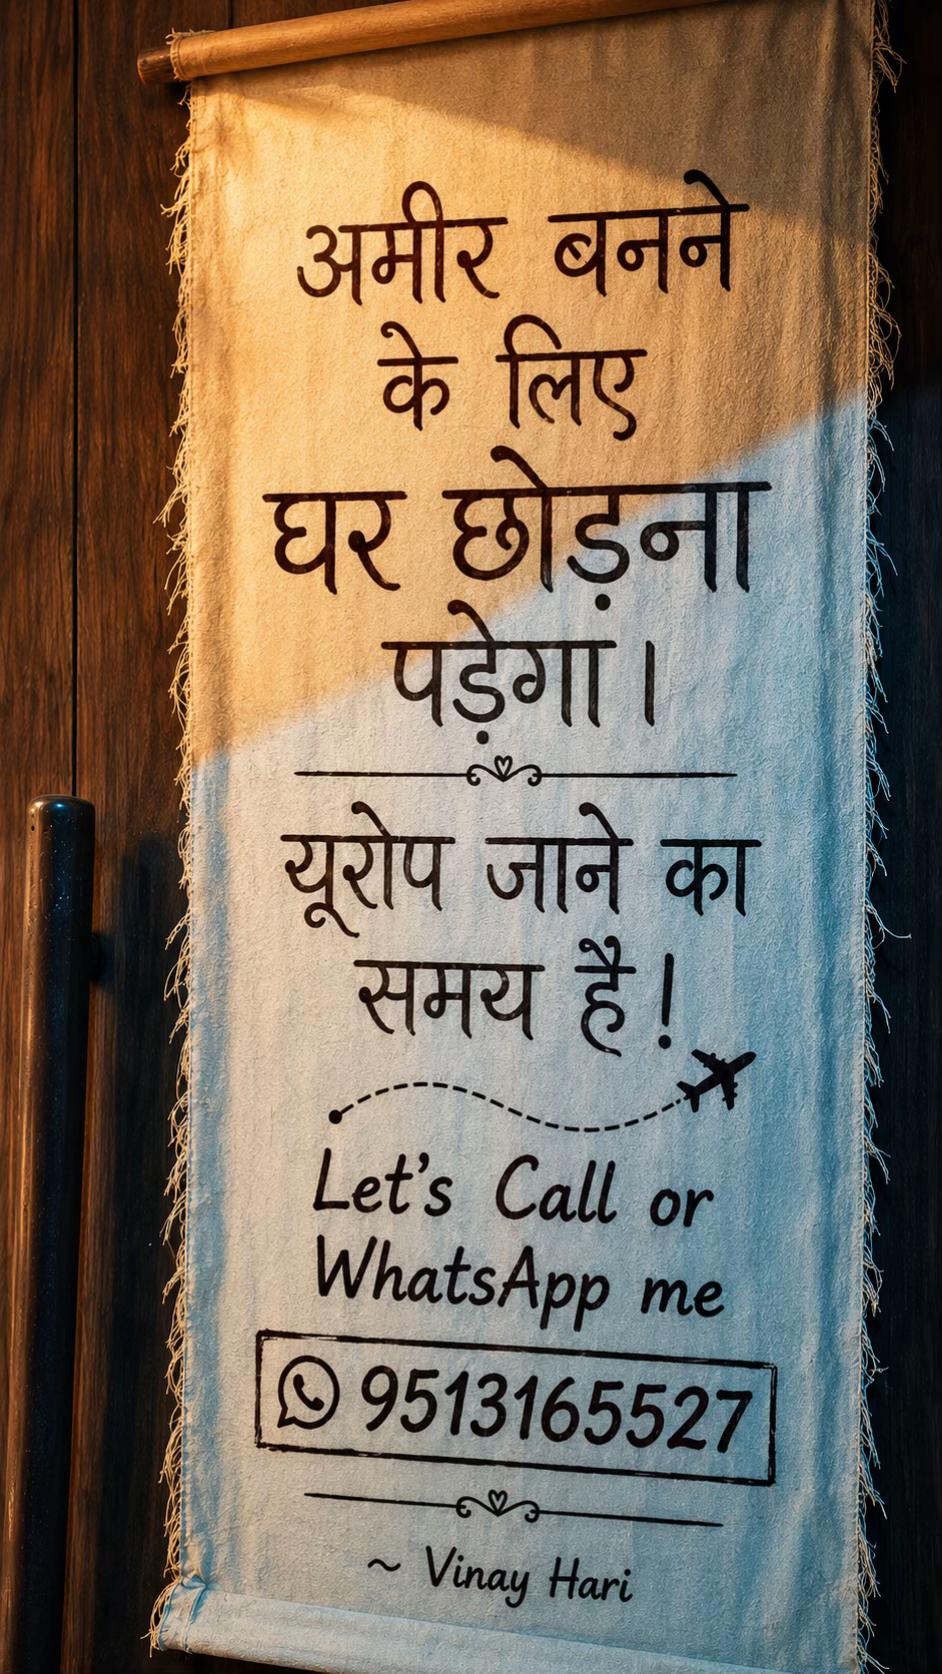 अमीर बनने
के लिए
घर छोड़ना
पड़ेगा।
यूरोप जाने का
समय है!
Let's Call or
WhatsApp me
9513165527
~ Vinay Hari